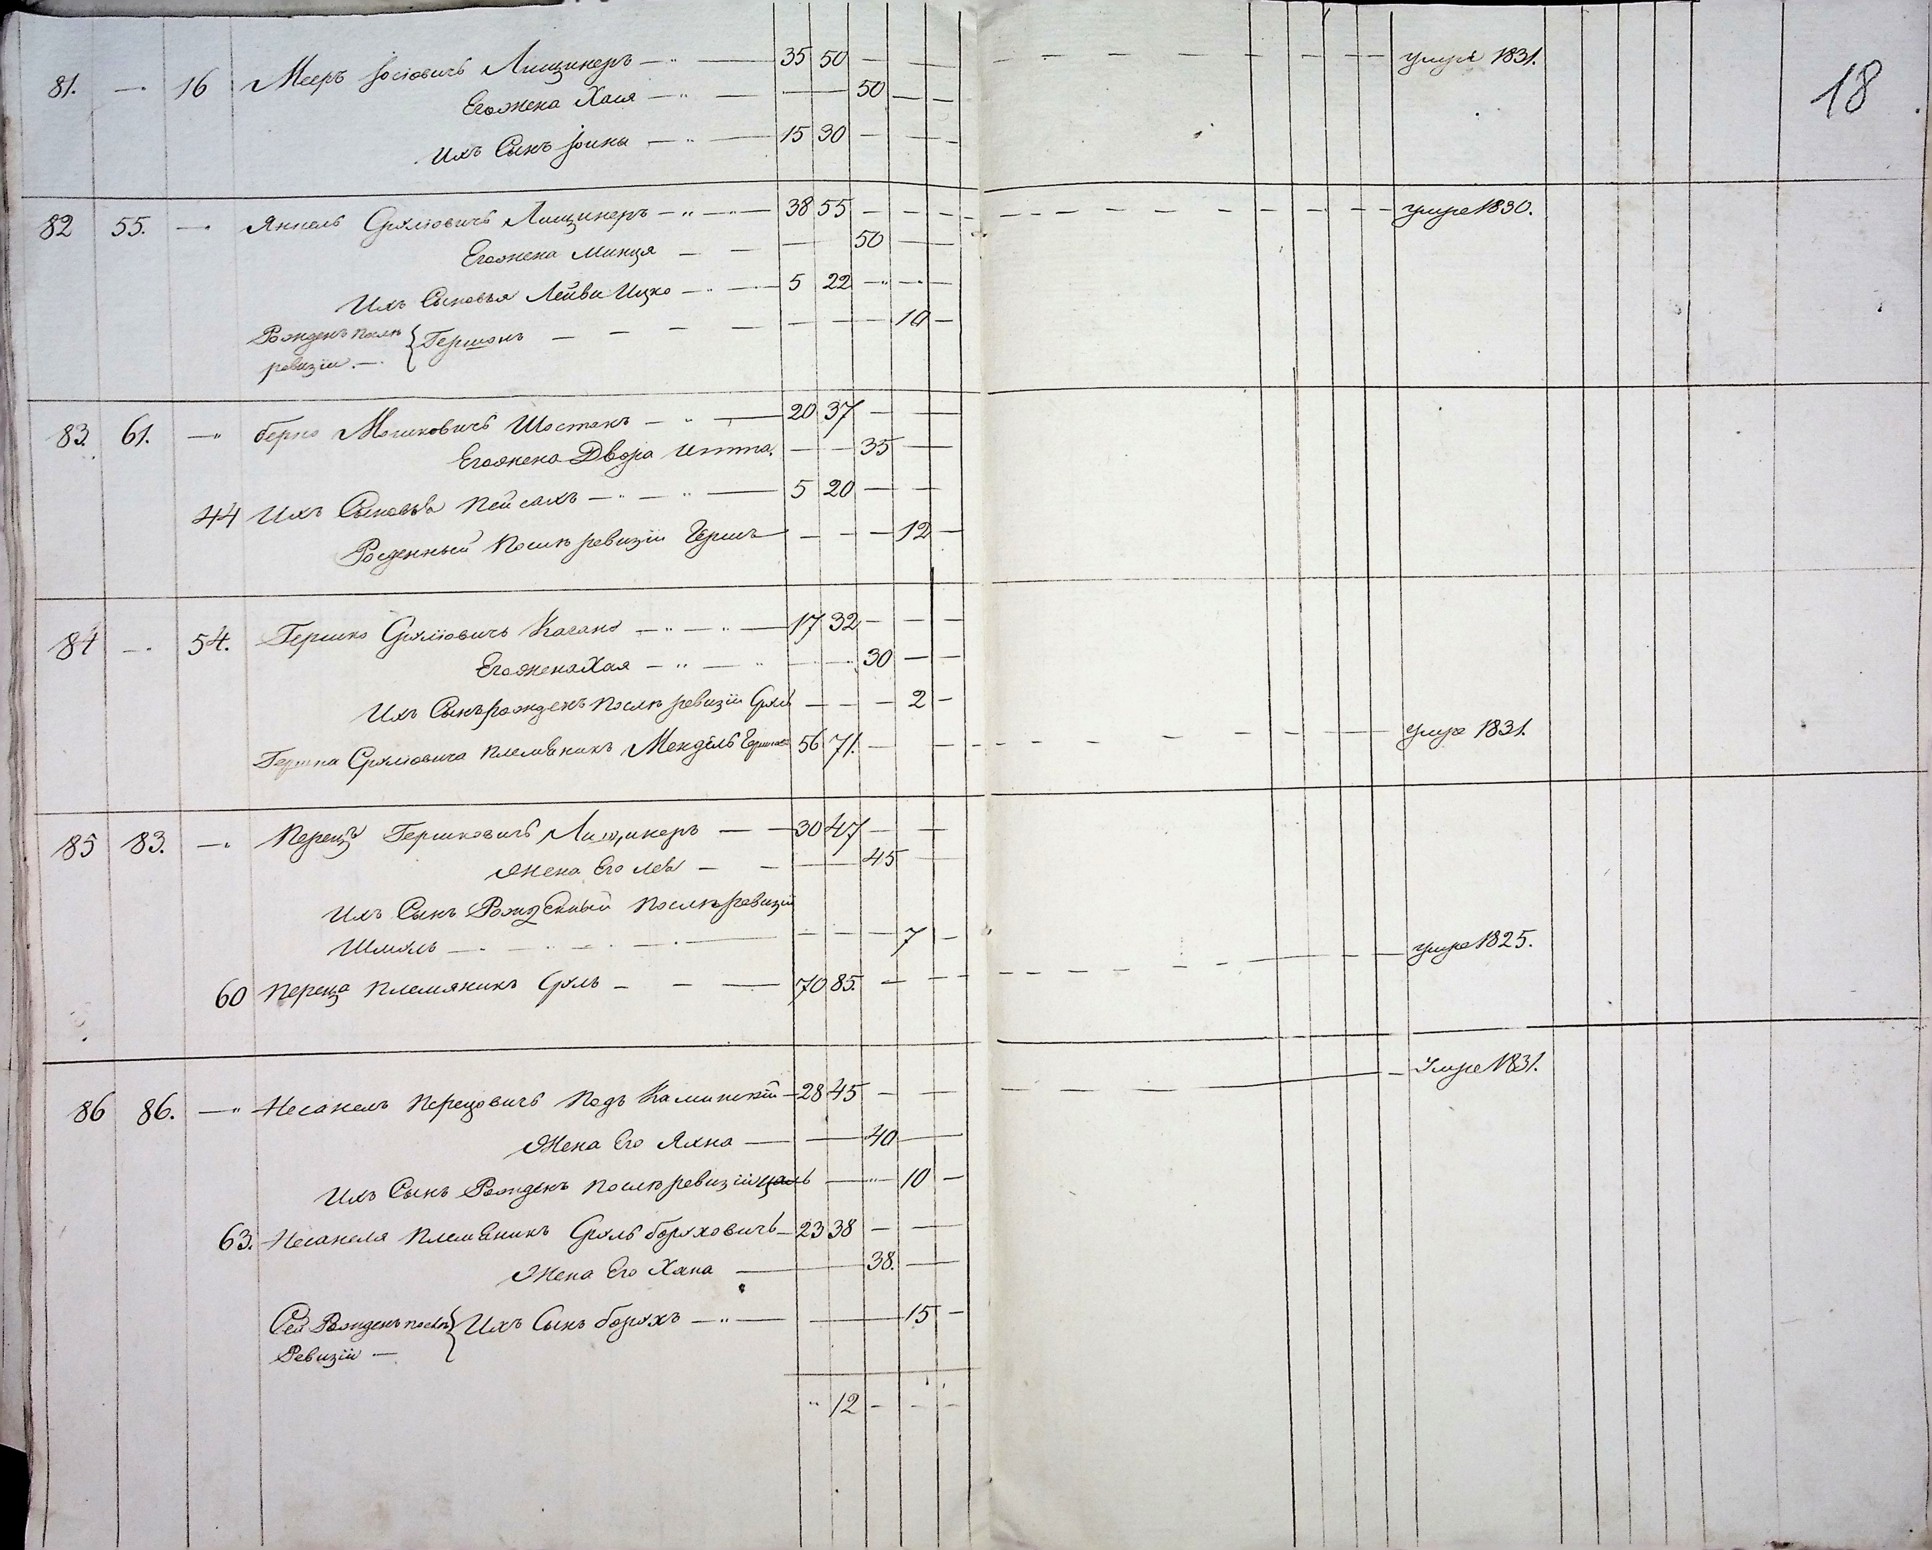 18
81. — 16 Мееръ Іосіовичъ Лищинеръ — 35 50 — — умре 1831.
Его жена Хася — 50 — —
Ихъ Сынъ Іоина — 15 30 — — —
82 55. — Янкель Срулiовичъ Лищинеръ — 38 55 — — — умре 1830.
Его жена Минця — 50 —
Ихъ Сыновья Лейба Ицко — 5 22 — — —
Рожденъ послѣ
ревизіи. — { Гершонъ — 10 —
83. 61. — Берко Мошковичъ Шостакъ — 20 37 — —
Его жена Двора Итта. — 35 —
44 Ихъ Сыновья Пейсахъ — 5 20 — —
Рожденный послѣ ревизіи Гершъ — 12 —
84 — 54. Гершко Срулiовичъ Каганъ — 17 32 — — —
Его жена Хая — 30 — —
Ихъ Сынъ рожденъ послѣ ревизіи Сруль — — — 2 —
Гершка Срулiовича племѣникъ Мендель 56 71. — — умре 1831.
85 83. — Перецъ Гершковичъ Лищинеръ — 30 47 — —
Жена Его Леа — — 45 —
Ихъ Сынъ Рожденный послѣ ревизіи
Шмуль — 7 —
60 Переца племяникъ Сруль — — — 70 85. — — — умре 1825.
86 86. — Несанель Перецовичъ Подъ Каминскій — 28 45 — — умре 1831.
Жена Его Яхна — 40 —
Ихъ Сынъ Рожденъ послѣ ревизіи — 10 —
63. Несанеля племѣникъ Сруль Боруховичъ — 23 38 — —
Жена Его Хана — 38. —
Сей Рожденъ послѣ
Ревизіи — { Ихъ Сынъ Борухъ — 15 —
" 12 — — —